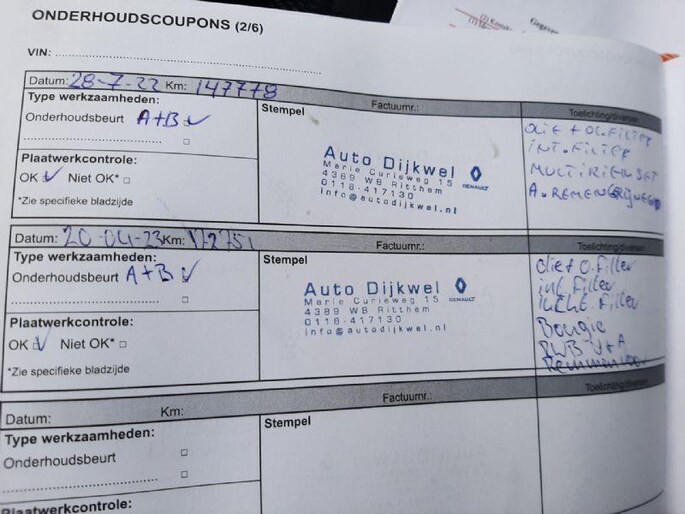 ONDERHOUDSCOUPONS (2/6)
VIN:
Datum: 28-7-22 Km: 147778 Factuurnr.: Toelichting/diversen
Type werkzaamheden:
Stempel
Onderhoudsbeurt A+B
Plaatwerkcontrole:
OK Niet OK*
*Zie specifieke bladzijde
Auto Dijkwel
Marie Curieweg 15
4389 WB Ritthem
0118-417130
info@autodijkwel.nl
RENAULT
OLIE + OL.FILTER
INT.FILTER
MULTIRIEMSET
A.REMEN
Datum: 20-04-23 Km: 172751 Factuurnr.: Toelichting/diversen
Type werkzaamheden:
Stempel
Onderhoudsbeurt A+B
Plaatwerkcontrole:
OK Niet OK*
*Zie specifieke bladzijde
Auto Dijkwel
Marie Curieweg 15
4389 WB Ritthem
0118-417130
info@autodijkwel.nl
RENAULT
olie+o.filter
int.filter
lucht.filter
Bougie
V+A
Datum: Km: Factuurnr.: Toelichting/diversen
Type werkzaamheden:
Stempel
Onderhoudsbeurt
Plaatwerkcontrole: